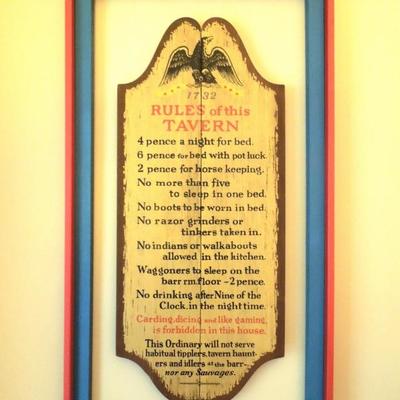 1732
RULES of this
TAVERN
4 pence a night for bed.
6 pence for bed with pot luck.
2 pence for horse keeping.
No more than five
to sleep in one bed.
No boots to be worn in bed.
No razor grinders or
tinkers taken in.
No indians or walkabouts
allowed in the kitchen.
Waggoners to sleep on the
barr rm. floor - 2 pence.
No drinking after Nine of the
Clock, in the night time.
Carding, dicing and like gaming
is forbidden in this house.
This Ordinary will not serve
habitual tipplers, tavern haunt-
ers and idlers at the barr-
nor any Sauvages.